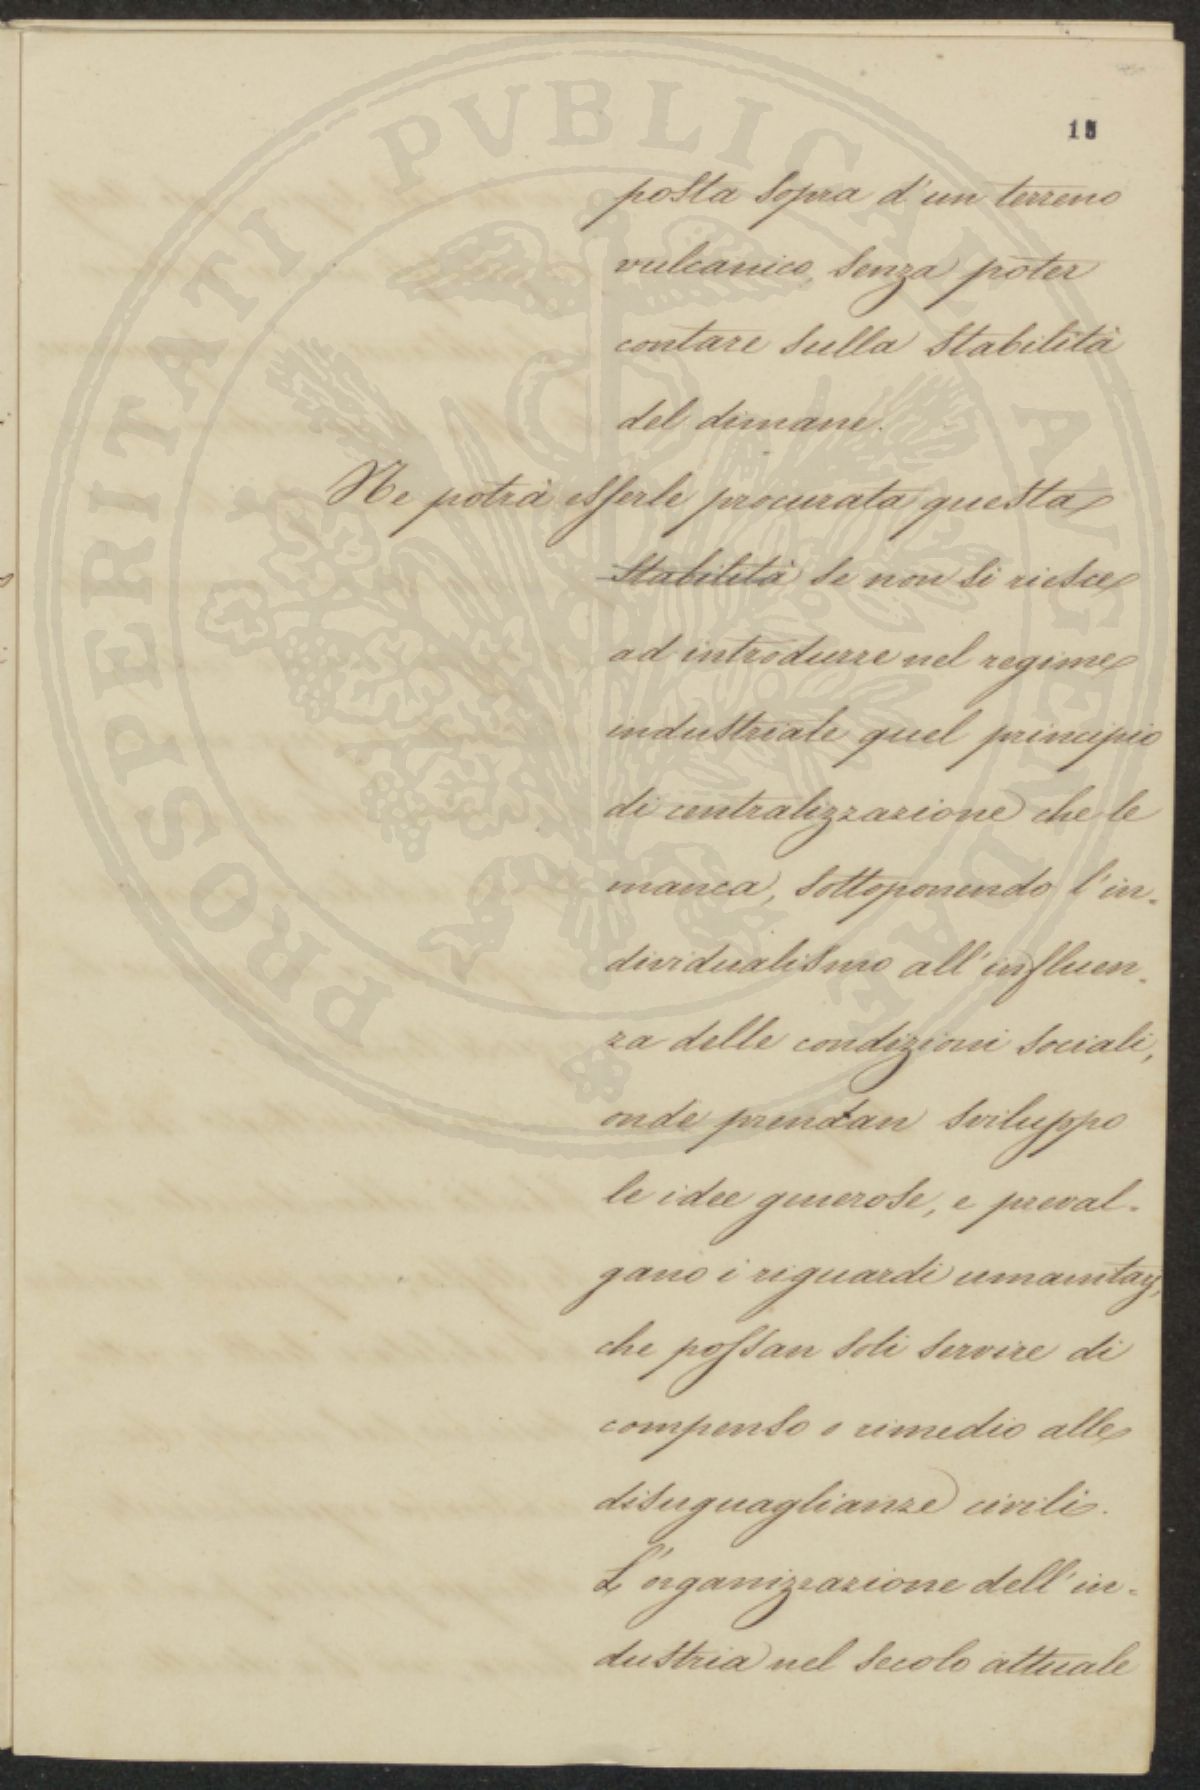 PROSPERITATI PVBLICAE AVGENDAE
posta sopra d'un terreno
vulcanico, senza poter
contare sulla stabilità
del dimane.
Ne potrà esserle procurata questa
stabilità se non si riesce
ad introdurre nel regime
industriale quel principio
di centralizzazione che le
manca, sottoponendo l'in-
dividualismo all'influen-
za delle condizioni sociali,
onde prendan sviluppo
le idee generose, e preval-
gano i riguardi umanitarj,
che possan soli servire di
compenso o rimedio alle
disuguaglianze civili.
L'organizzazione dell'in-
dustria nel secolo attuale